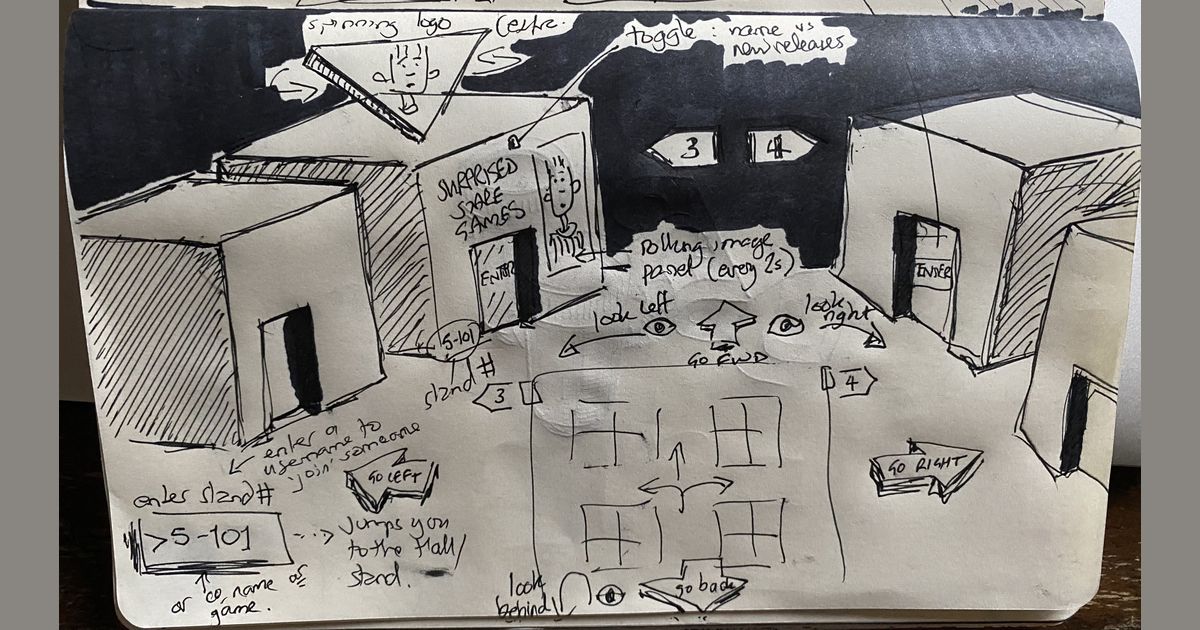 spinning logo
Centre.
toggle: name vs
new releases
3
4
SURPRISED
STARE
GAMES
ENTER
rolling image
panel (every 2s)
ENTER
look left
look
right
GO FWD
5-101
stand #
3
4
enter a
username to
'join' someone
GO LEFT
GO RIGHT
enter stand #
>5-101
Jumps you
to the Hall/
stand.
or co, name or
game.
look
behind
go back